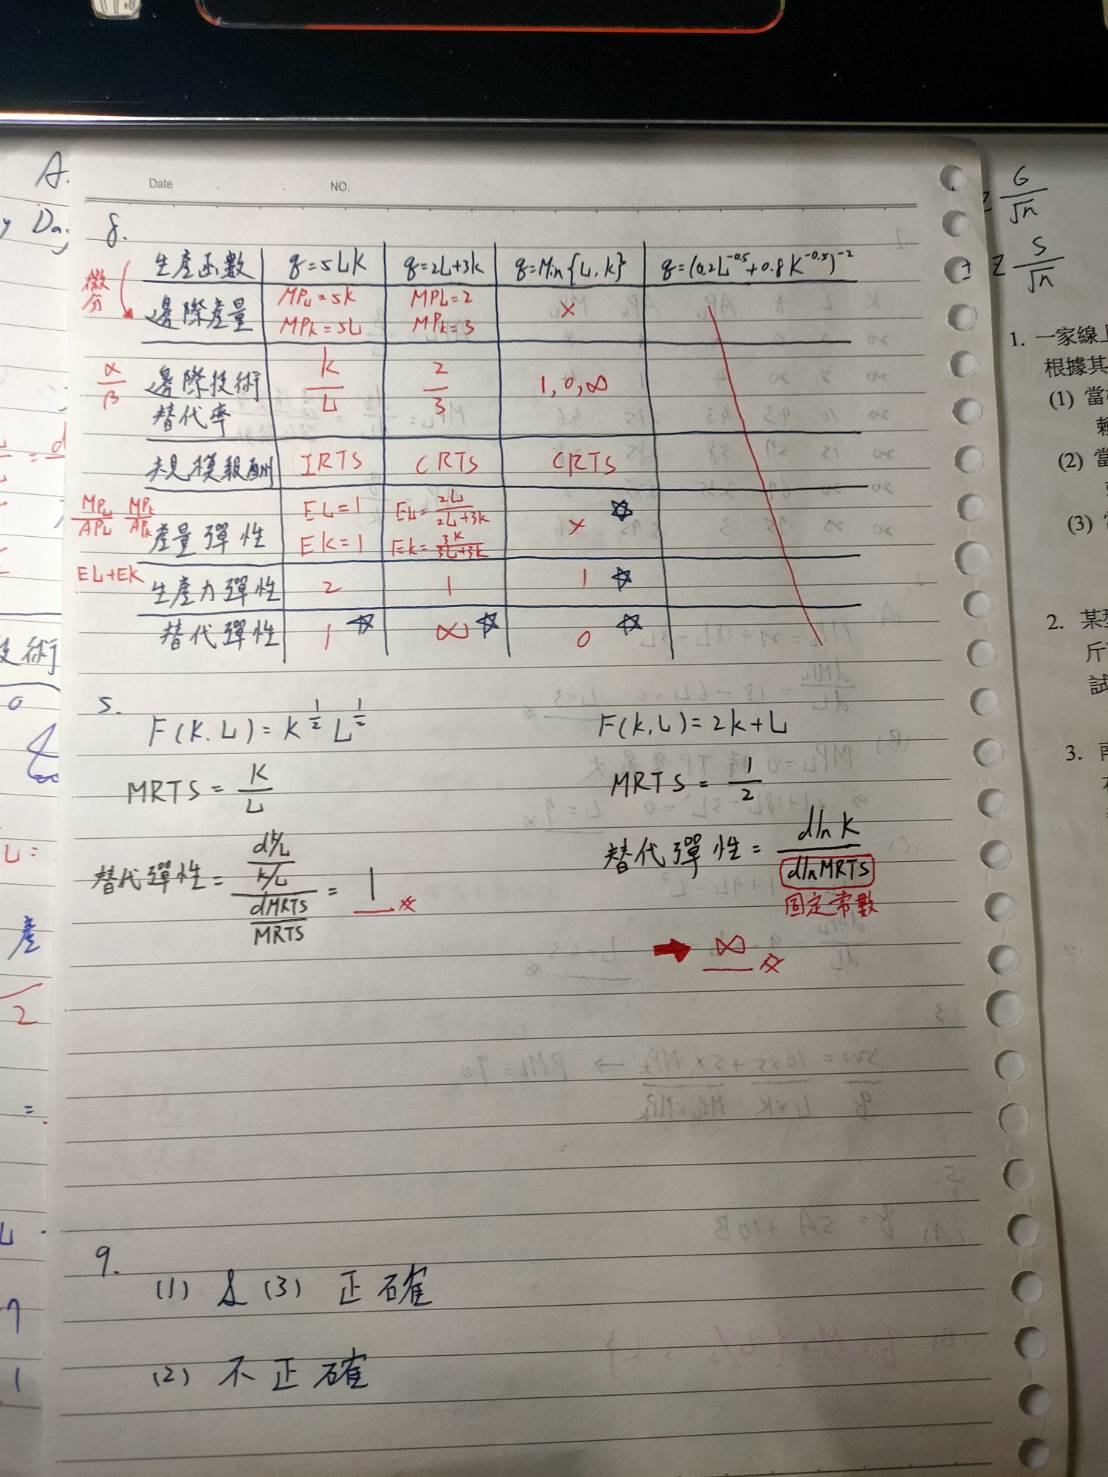 Date NO.
8.
生產函數 q=5LK q=2L+3K q=Min{L,K} q=(0.2L^-0.5+0.8K^-0.5)^-2
微分 邊際產量 MPL=5K MPL=2 ×
MPK=5L MPK=3
α/β 邊際技術替代率 K/L 2/3 1,0,∞
規模報酬 IRTS CRTS CRTS
MPL/APL MPK/APK 產量彈性 EL=1 EL=2L/2L+3K × ☆
EK=1 EK=3K/3L+3K
EL+EK 生產力彈性 2 1 1 ☆
替代彈性 1 ☆ ∞ ☆ 0 ☆
5.
F(K.L)=K^1/2 L^1/2
MRTS=K/L
替代彈性=(dK/L / K/L)/(dMRTS/MRTS)=1
F(K,L)=2K+L
MRTS=1/2
替代彈性=dlnK/dlnMRTS
固定常數
→ ∞
9.
(1) & (3) 正確
(2) 不正確
A.
y Da
技術
0
L=
產
2
=
7
1
σ/√n
± Z S/√n
1. 一家線上
根據其
(1) 當
(2) 當
(3)
2. 某
斤
試
3.